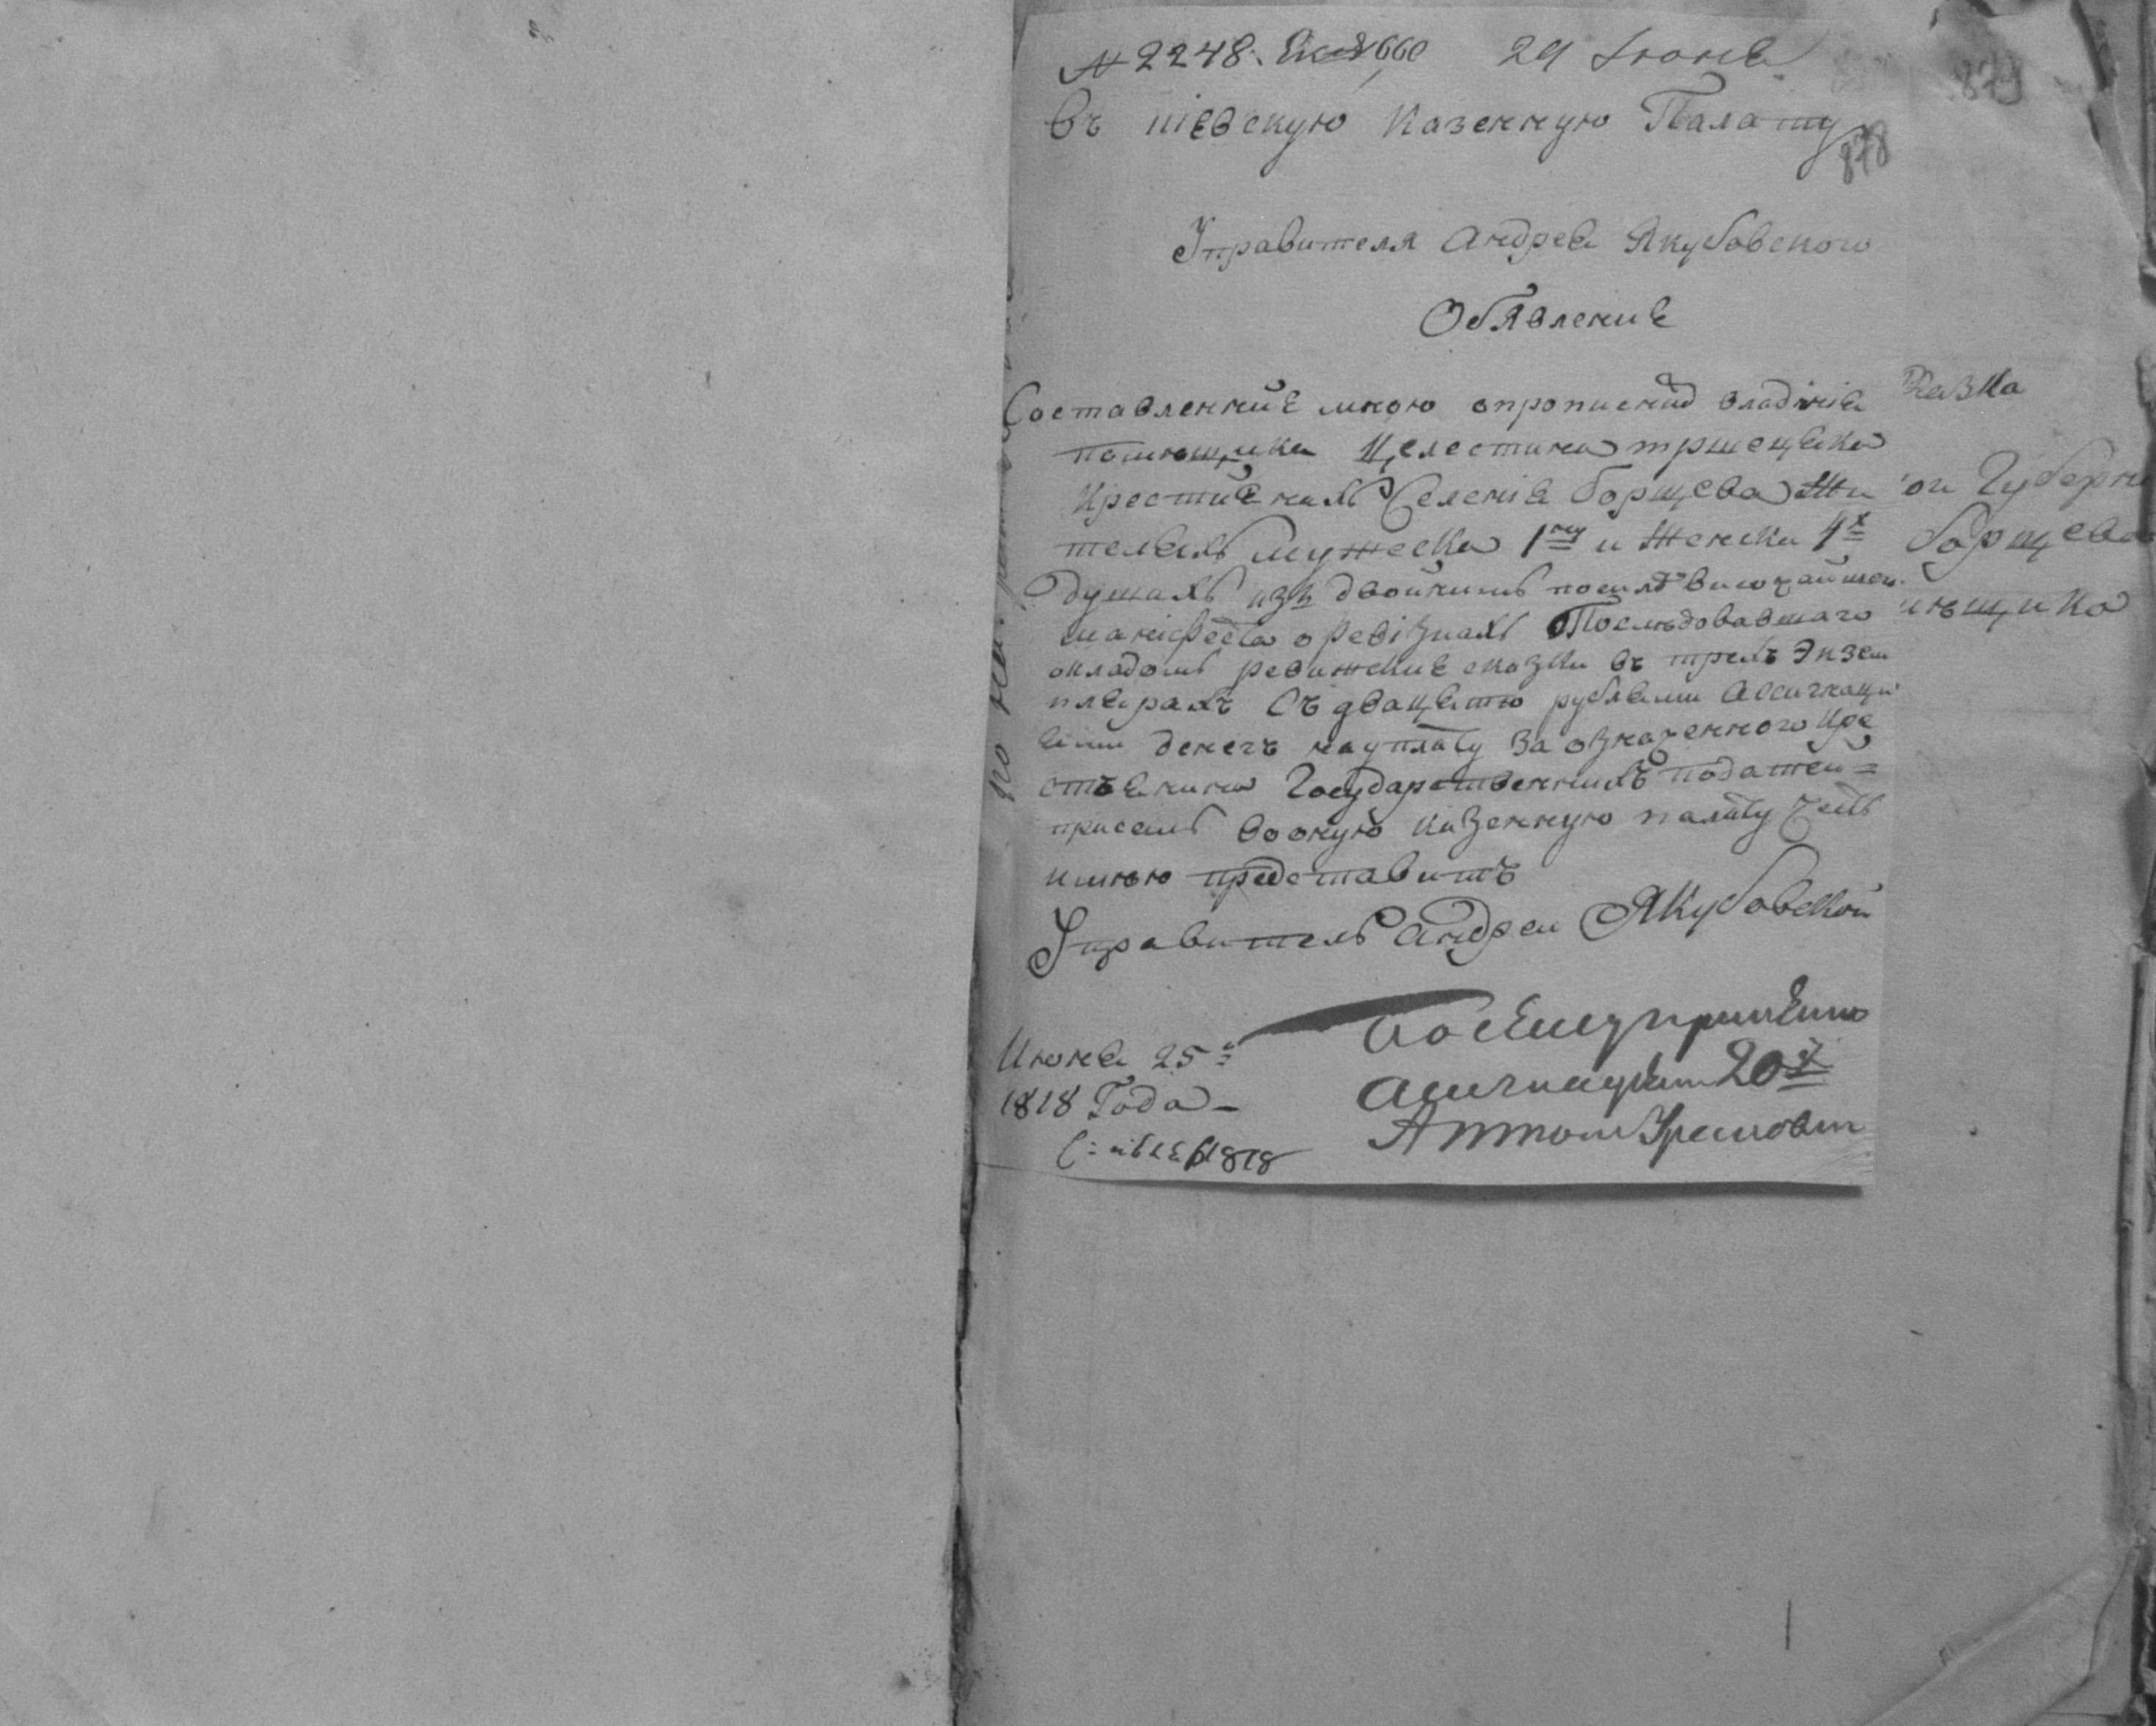 № 2248. 29 Июня
879
Въ кіевскую Казенную Палату
878
Управителя Андрея Якубовского
Обявление
Составленние мною опрописной владѣнія
помѣщика Целестина тршецяка
Крестиянахъ Селенія борщева Жи
теляхъ мужеска 1му и Женска 4х
душахъ изъ двойнимъ посилѣ височайшего
манѣфеста оревізиахъ Послѣдовавшаго
окладомъ ревижские сказки въ трехъ Экзем
плярахъ Съ двацятю рублями Ассигнаци
ями денегъ науплату за ознаженного Кре
стъянина Государственнихъ податей =
присемъ вооную казенную палату Честь
имѣю представитъ
Управитель Андрей Якубовской
Июня 25:
1818 Года –
1818
По сему принято
асигнацiями 20
Казка
ои Губерни
борщева
мѣщика
по